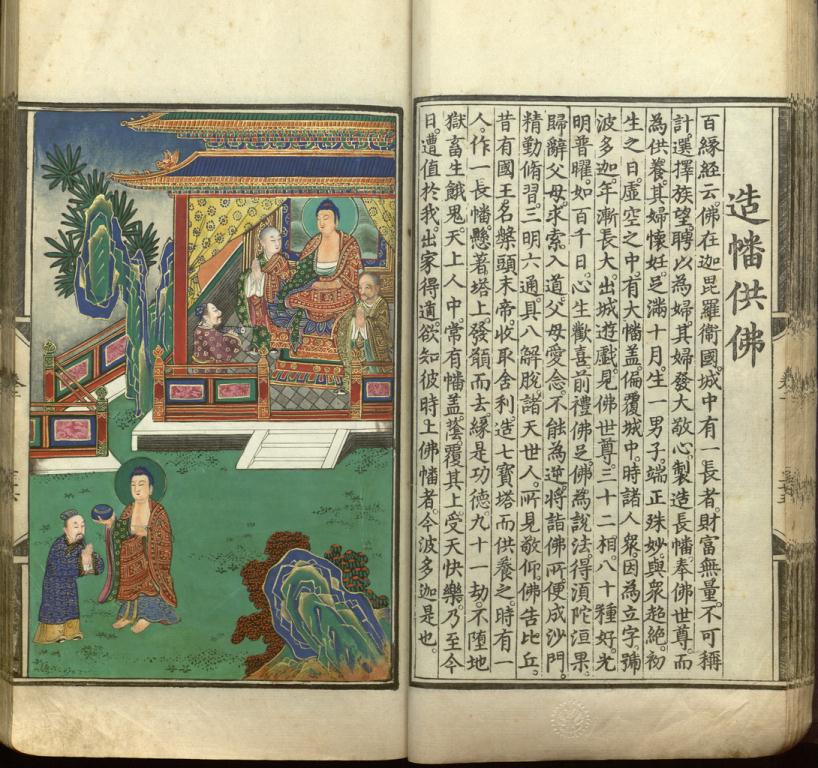 造幡供佛
百緣經云。佛在迦毘羅衞國。城中有一長者。財富無量。不可稱
計。選擇族望。聘以為婦。其婦發大敬心。製造長幡。奉佛世尊。而
為供養。其婦懷妊。足滿十月。生一男子。端正殊妙。與衆超絶。初
生之日。虛空之中。有大幡盖。徧覆城中。時諸人衆。因為立字。號
波多迦。年漸長大。出城遊戲。見佛世尊。三十二相。八十種好。光
明普曜。如百千日。心生歡喜。前禮佛足。佛為說法。得湏陀洹果。
歸辭父母。求索入道。父母愛念。不能為逆。將詣佛所。便成沙門。
精勤脩習。三明六通。具八解脫。諸天世人。所見敬仰。佛告比丘。
昔有國王。名槃頭末帝。收取舍利。造七寶塔。而供養之。時有一
人。作一長幡。懸著塔上。發願而去。緣是功德。九十一劫。不墮地
獄畜生餓鬼。天上人中。常有幡盖。蔭覆其上。受天快樂。乃至今
日。遭值於我。出家得道。欲知彼時上佛幡者。今波多迦是也。